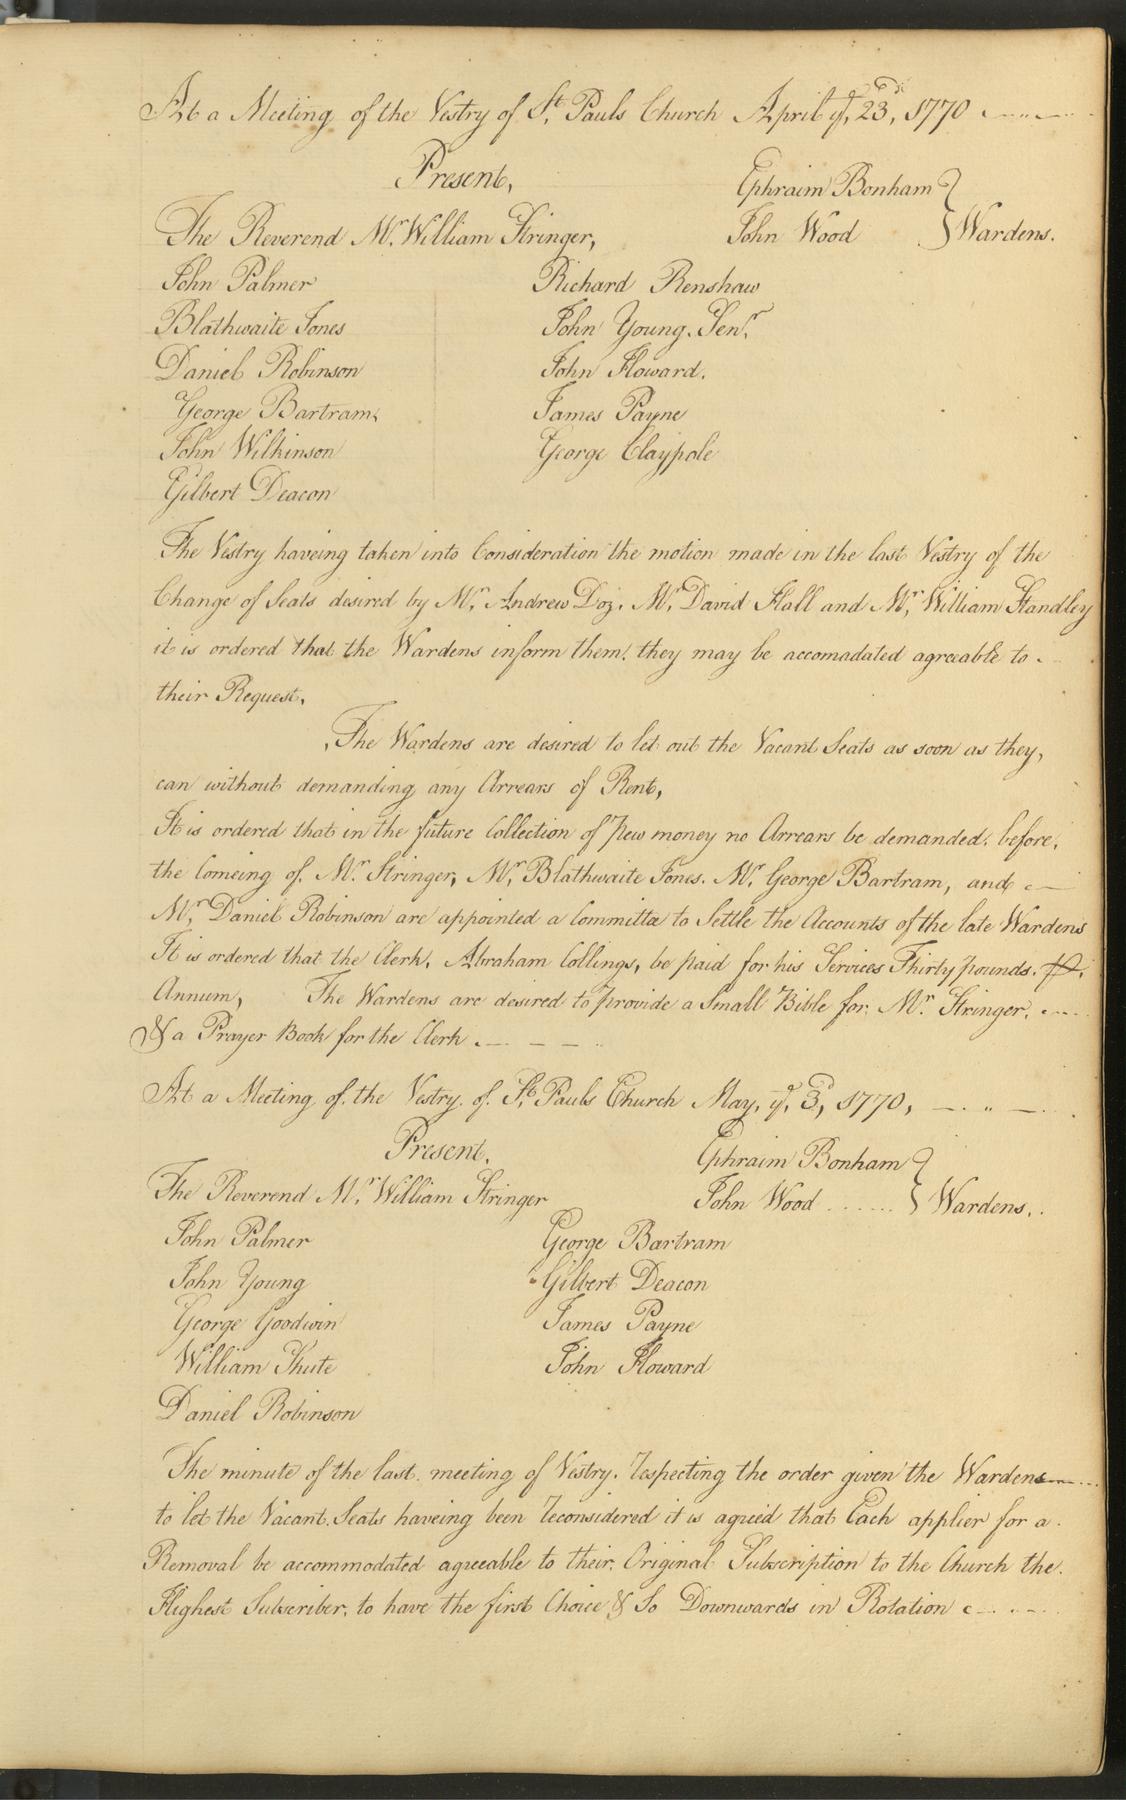 At a Meeting of the Vestry of St. Pauls Church April ye. 23d, 1770
Present,
Ephraim Bonham
The Reverend Mr. William Stringer,
John Wood } Wardens.
John Palmer
Richard Renshaw
Blathwaite Jones
John Young. Senr.
Daniel Robinson
John Howard.
George Bartram,
James Payne
John Wilkinson
George Claypole
Gilbert Deacon
The Vestry haveing taken into Consideration the motion made in the last Vestry of the
Change of Seats desired by Mr. Andrew Doz. Mr. David Hall and Mr. William Standley
it is ordered that the Wardens inform them. they may be accomadated agreeable to
their Request.
The Wardens are desired to let out the Vacant Seats as soon as they,
can without demanding any Arrears of Rent,
It is ordered that in the future Collection of Pew money no Arrears be demanded. before,
the Comeing of. Mr. Stringer, Mr. Blathwaite Jones. Mr. George Bartram, and
Mr. Daniel Robinson are appointed a Committee to Settle the Accounts of the late Wardens
It is ordered that the Clerk. Abraham Collings, be paid for his Services Thirty pounds. ⅌.
Annum, The Wardens are desired to provide a Small Bible for. Mr. Stringer.
& a Prayer Book for the Clerk
At a Meeting of. the Vestry. of. St. Pauls Church May, ye. 3d, 1770,
Present.
Ephraim Bonham
The Reverend Mr. William Stringer
John Wood ...... } Wardens..
John Palmer
George Bartram
John Young
Gilbert Deacon
George Goodwin
James Payne
William Shute
John Howard
Daniel Robinson
The minute of the last. meeting of Vestry. Respecting the order given the Wardens
to let the Vacant Seats haveing been Reconsidered it is agreed that Each applier for a
Removal be accommodated agreeable to their. Original Subscription to the Church the.
Highest Subscriber, to have the first Choice & So Downwards in Rotation